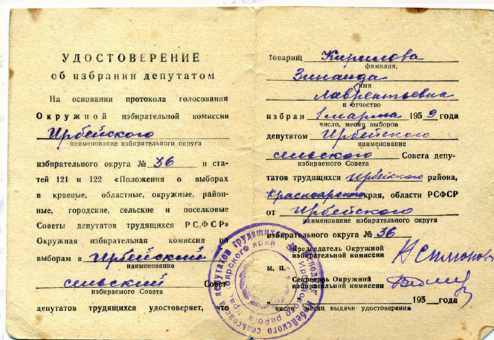 УДОСТОВЕРЕНИЕ
об избрании депутатом
На основании протокола голосования
Окружной избирательной комиссии
Ирбейского
наименование избирательного округа
избирательного округа № 36 и ста-
тей 121 и 122 «Положения о выборах
в краевые, областные, окружные, район-
ные, городские, сельские и поселковые
Советы депутатов трудящихся РСФСР»
Окружная избирательная комиссия по
выборам в Ирбейский
наименование
сельский Совет
избираемого Совета
депутатов трудящихся удостоверяет, что
Товарищ Кирилова
фамилия,
Зинаида
имя
Лаврентьевна
и отчество
избран 1 марта 1959 года
число, месяц выборов
депутатом Ирбейского
наименование
сельского Совета депу-
избираемого Совета
татов трудящихся Ирбейского района,
Красноярского края, области РСФСР
от Ирбейского
наименование избирательного округа
избирательного округа № 36
Председатель Окружной
избирательной комиссии
М. П.
Секретарь Окружной
избирательной комиссии
195 года
число, месяц выдачи удостоверения